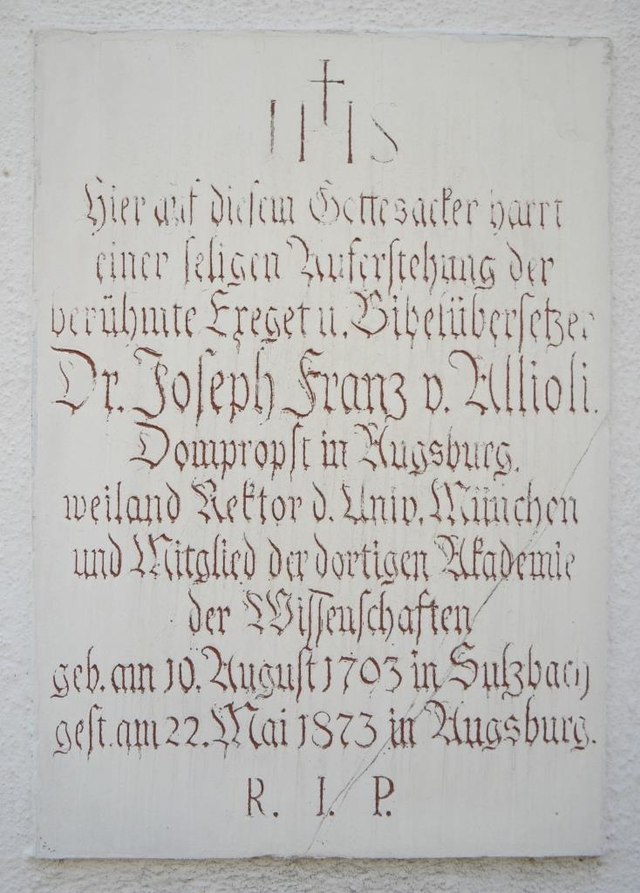 IHS
Hier auf diesem Gottesacker harrt
einer seligen Auferstehung der
berühmte Exeget u. Bibelübersetzer
Dr. Joseph Franz v. Allioli.
Dompropst in Augsburg.
weiland Rektor d. Univ. München
und Mitglied der dortigen Akademie
der Wissenschaften
geb. am 10. August 1703 in Sulzbach
gest. am 22. Mai 1873 in Augsburg.
R. I. P.